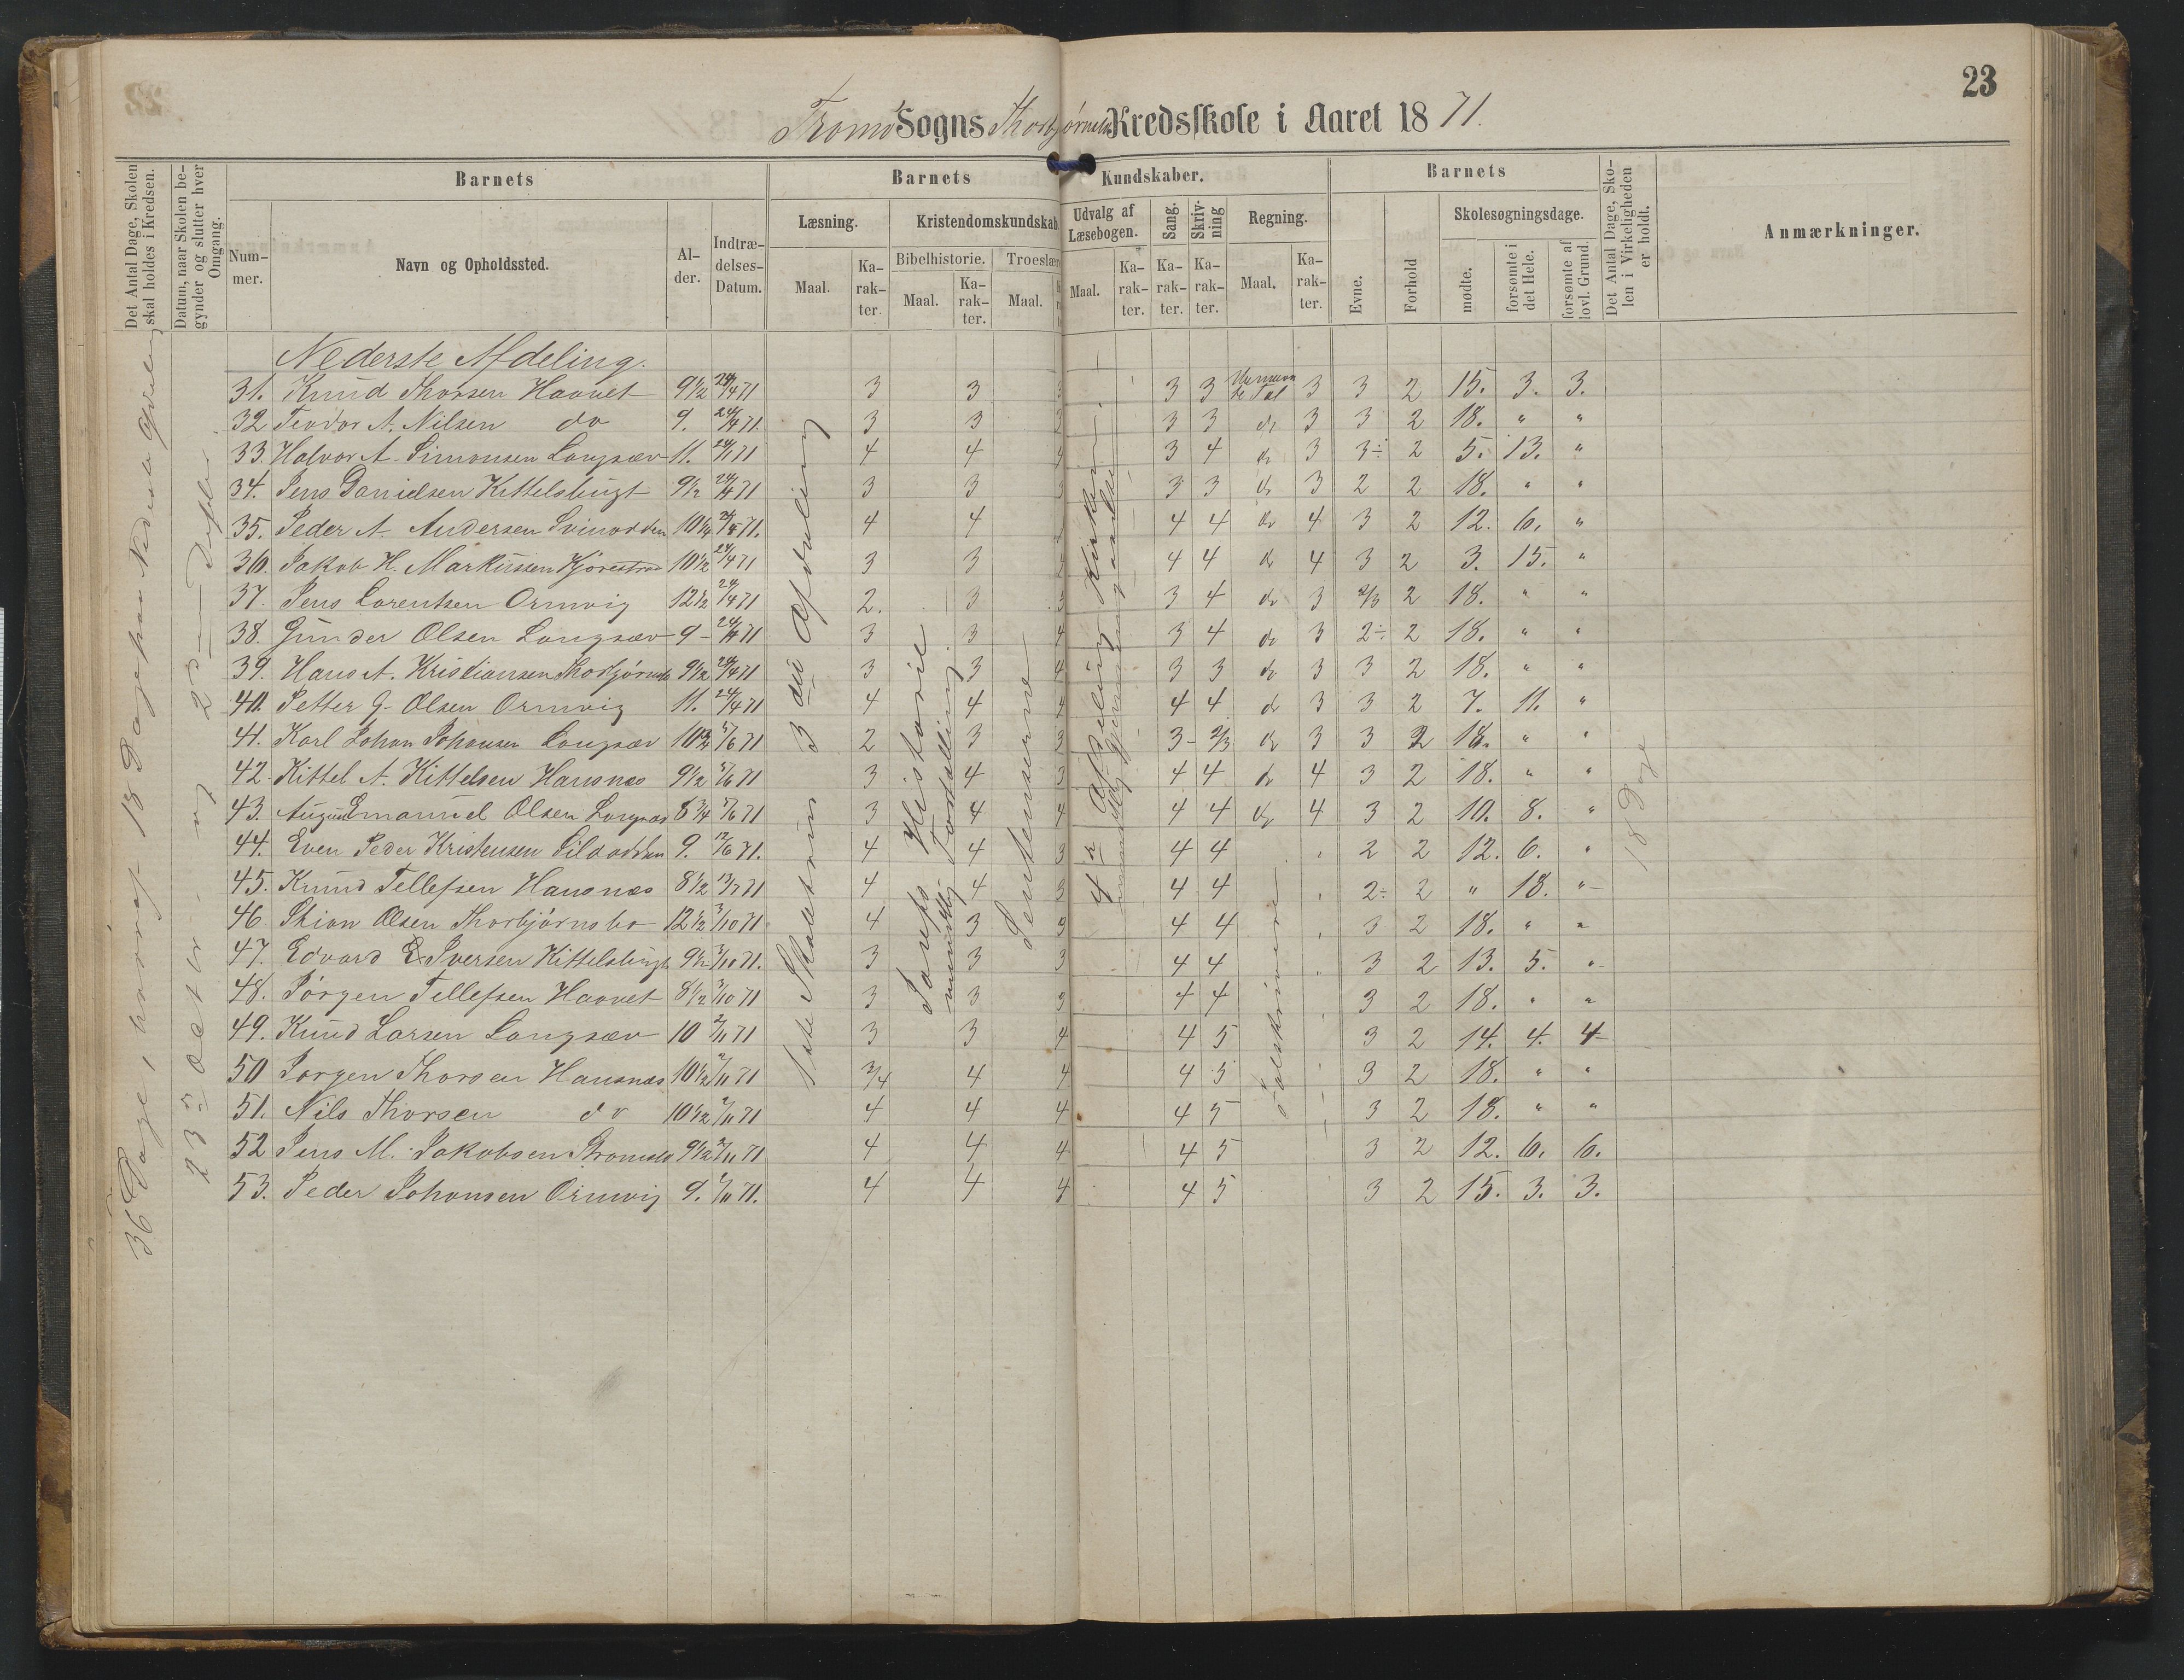 23
Tromø Sogns Thorbjørnsbo Kredsskole i Aaret 1871.
Det Antal Dage, Skolen skal holdes i Kredsen.
Datum, naar Skolen begynder og slutter hver Omgang.
Barnets
Nummer.
Navn og Opholdssted.
Alder.
Indtrædelses-Datum.
Barnets Kundskaber.
Læsning.
Maal.
Karakter.
Kristendomskundskab
Bibelhistorie.
Maal.
Karakter.
Troeslær
Maal.
Udvalg af Læsebogen.
Maal.
Karakter.
Sang.
Karakter.
Skrivning
Karakter.
Regning.
Maal.
Karakter.
Barnets
Evne.
Forhold
Skolesøgningsdage.
mødte.
forsømte i det Hele.
forsømte af lovl. Grund.
Det Antal Dage, Skolen i Virkeligheden er holdt.
Anmærkninger.
36 Dage, hvoraf 18 Dage paa Nederste Afdeling
Nederste Afdeling.
31. Knud Thorsen Havnet 9 1/2 24/4 71 3 3 3 3 3 3 3 2 15. 3. 3.
32 Teodor A. Nilsen do 9. 24/4 71. 3 3 3 3 3 do 3 3 2 18. " "
33. Halvor A. Simonsen Longsæv 11. 24/4 71 4 4 4 3 4 do 3 3÷ 2 5. 13. "
34. Jens Danielsen Kittelsbugt 9 1/2 24/4 71 3 3 3 3 3 do 3 2 2 18. " "
35. Peder A. Andersen Svinodden 10 1/4 24/4 71. 4 4 4 4 4 do 4 3 2 12. 6. "
36. Jakob H. Markussen Kjørestrad 10 1/2 24/4 71 3 3 4 4 4 do 4 3 2 3. 15. "
37. Jens Lorentsen Ormvig 12 1/2 24/4 71 2. 3 3 3 4 do 3 2/3 2 18. " "
38. Gunder Olsen Longsæv 9 - 24/4 71 3 3 4 3 4 do 3 2÷ 2 18. " "
39. Hans A. Kristiansen Thorbjørnsb 9 1/2 24/4 71 3 3 4 3 3 do 3 3 2 18. " "
40. Petter G. Olsen Ormvig 11. 24/4 71 4 4 4 4 4 do 3 3 2 7. 11. "
41. Karl Johan Johansen Longsæv 10 3/4 5/6 71 2 3 3 3- 2/3 do 3 3 2 18. " "
42. Kittel A. Kittelsen Hansnæs 9 1/2 5/6 71 3 4 3 4 4 do 4 3 2 18. " "
43. August Emanuel Olsen Longnæs 8 3/4 5/6 71 3 4 4 4 4 do 4 3 2 10. 8. "
44. Even Peder Kristensen Sildodden 9. 12/6 71. 4 4 3 4 4 2 2 12. 6. "
45. Knud Tellefsen Hansnæs 8 1/2 13/7 71 4 4 3 4 4 2÷ 2 " 18. "
46. Stian Olsen Thorbjørnsbo 12 1/2 3/10 71 4 3 3 4 4 3 2 18. " "
47. Edvard E Iversen Kittelsbugt 9 1/2 3/10 71. 3 3 3 4 4 3 2 13. 5. "
48. Jørgen Tellefsen Havnet 8 1/2 3/10 71 3 3 3 4 4 3 2 18. " "
49. Knud Larsen Longsæv 10 2/11 71 3 3 4 4 5 3 2 14. 4. 4
50 Jørgen Thorsen Hansnæs 10 1/2 2/11 71 3/4 4 4 4 5 3 2 18. " "
51. Nils Thorsen do 10 1/2 2/11 71 4 4 4 4 5 3 2 18. " "
52 Jens M. Jakobsen 9 1/2 2/11 71 4 4 4 4 5 3 2 12. 6. 6.
53. Peder Johansen Ormvig 9. 2/11 71. 4 4 4 4 5 3 2 15. 3. 3.
3 die Afdeling
Historie
mundtlig Fortælling.
Sentenserne
4de Afdeling Kirken
Talskrivning
18 Dage